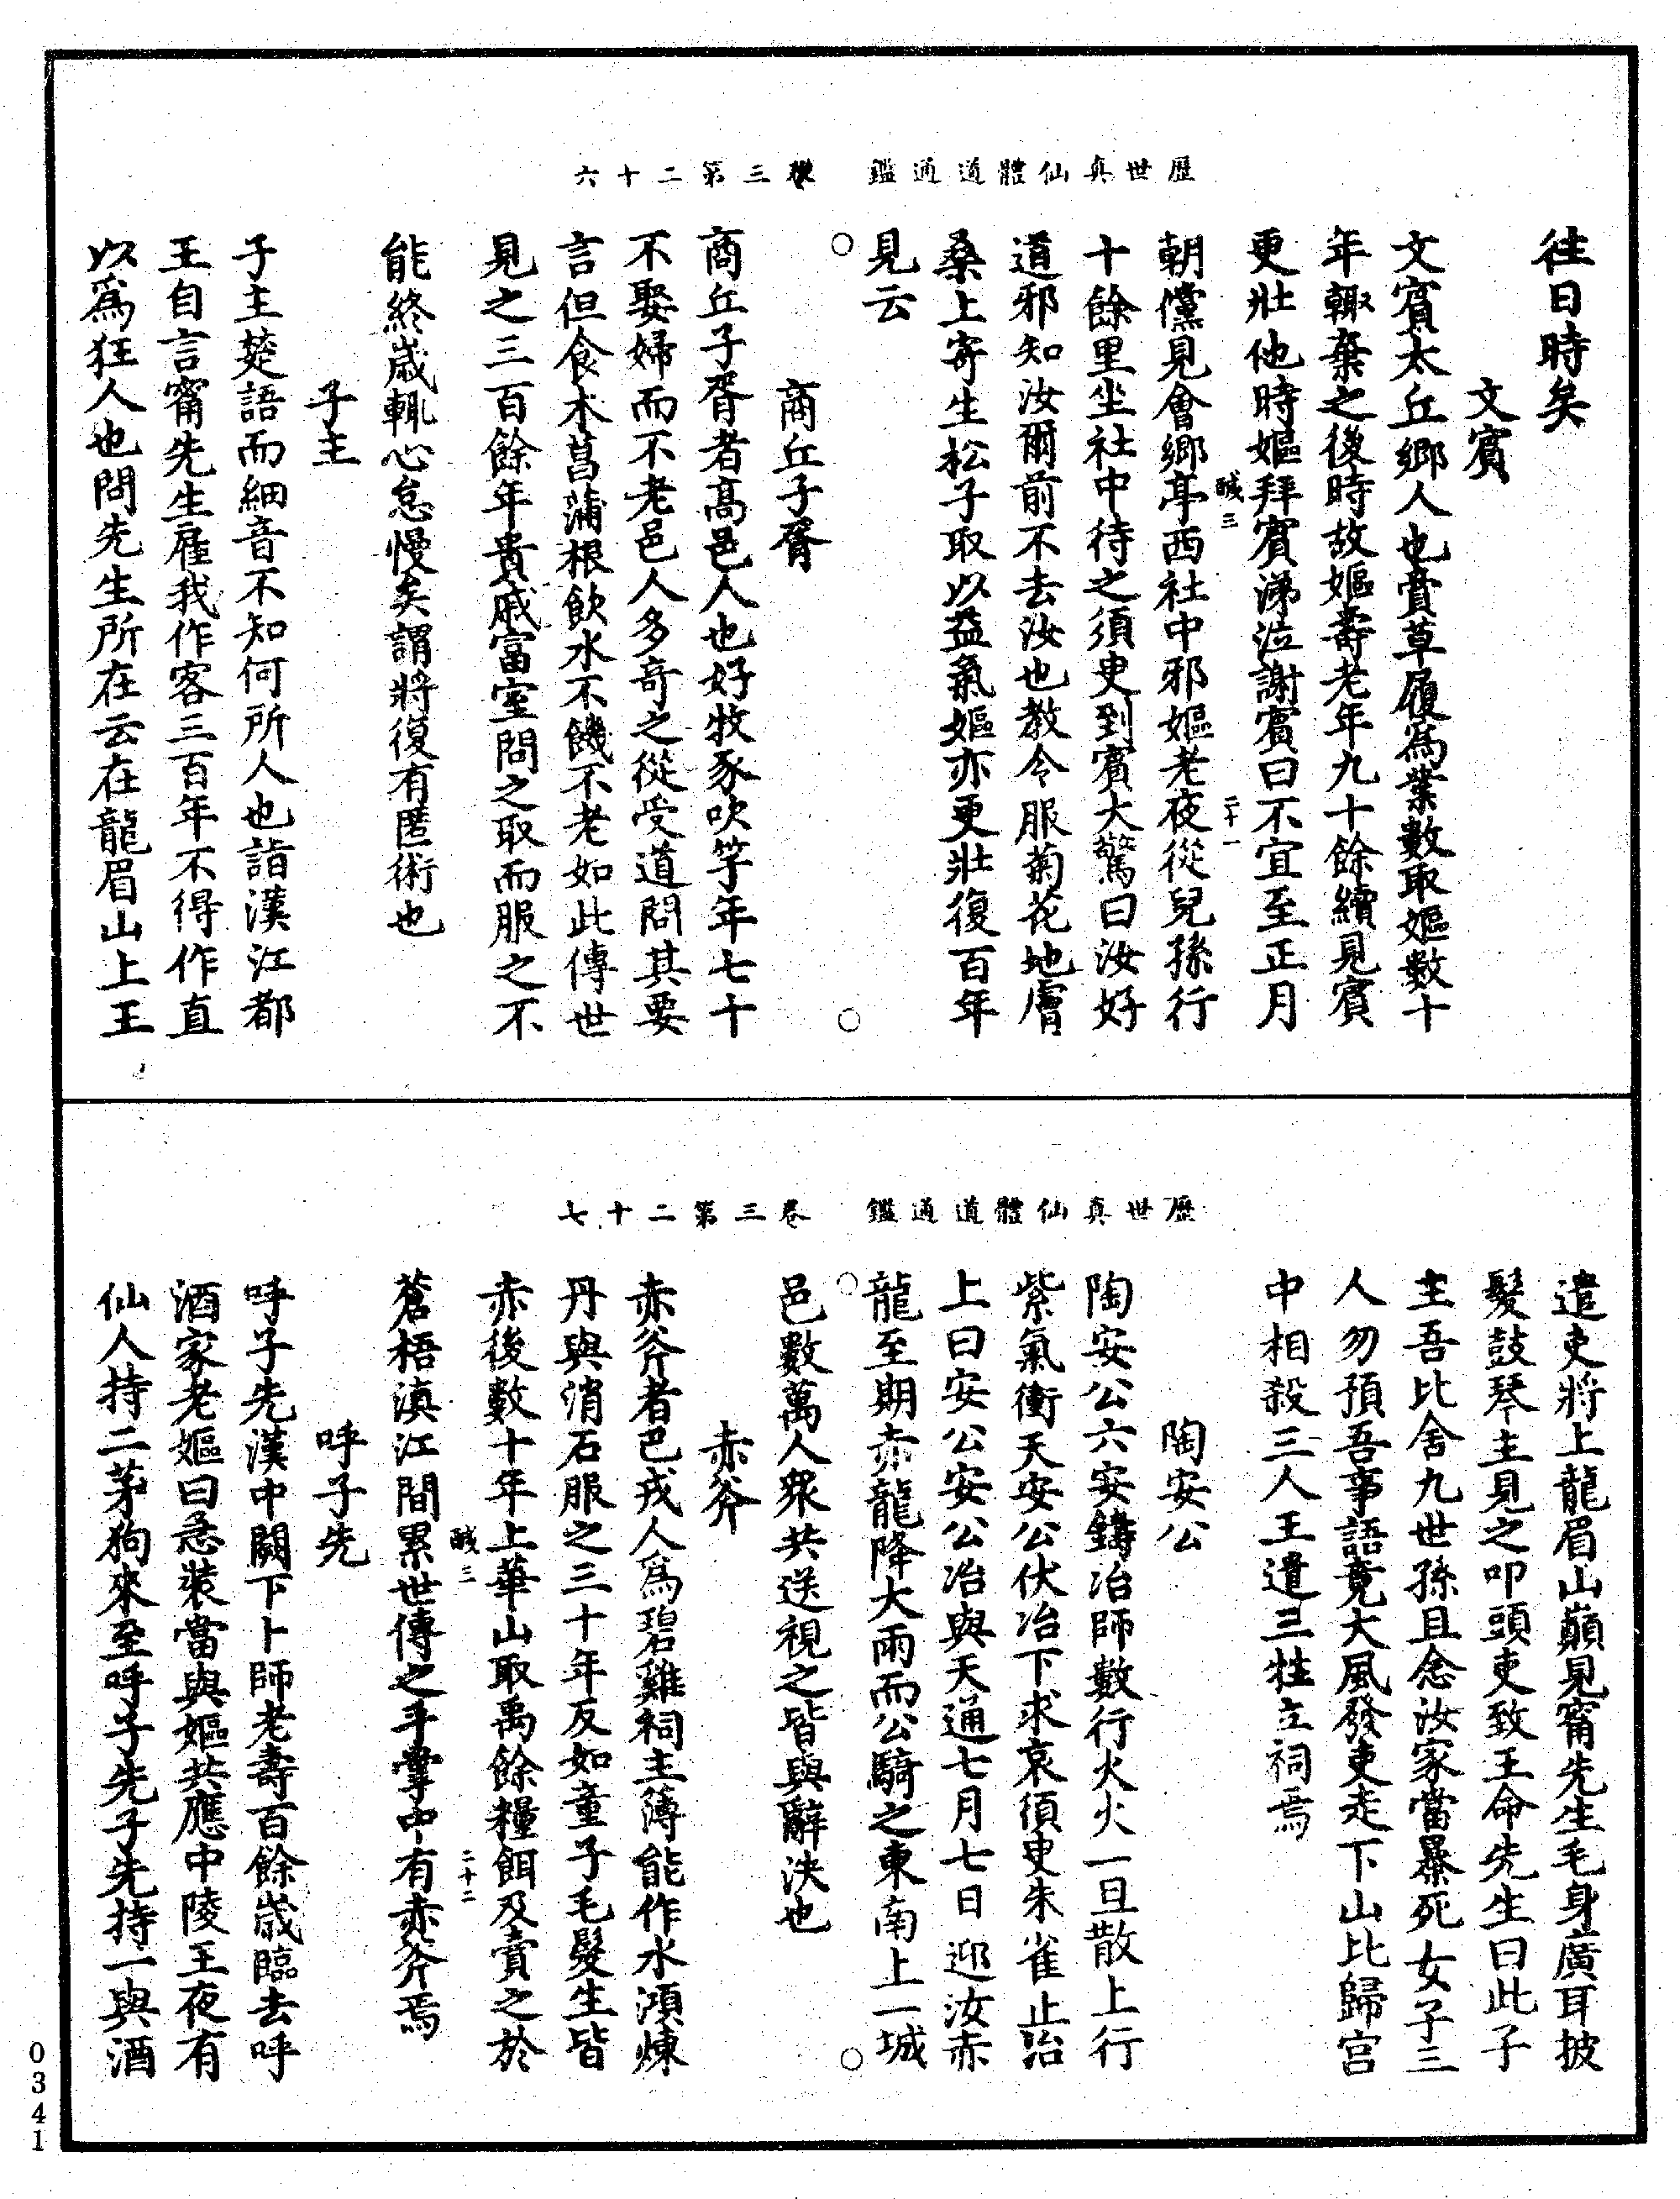 歷世真仙體道通鑑　卷三第二十六
往日時矣
文賓
文賓太丘鄉人也賣草履為業數取嫗數十
年輙棄之後時故嫗壽老年九十餘續見賓
更壯他時嫗拜賓涕泣謝賓曰不宜至正月
鹹三　二十一
朝儻見會鄉亭西社中邪嫗老夜從兒孫行
十餘里坐社中待之須臾到賓大驚曰汝好
道邪知汝爾前不去汝也教令服菊花地膚
桑上寄生松子取以益氣嫗亦更壯復百年
見云
商丘子胥
商丘子胥者高邑人也好牧豕吹竽年七十
不娶婦而不老邑人多奇之從受道問其要
言但食朮菖蒲根飲水不饑不老如此傳世
見之三百餘年貴戚富室問之取而服之不
能終歲輒心怠慢矣謂將復有匿術也
子主
子主楚語而細音不知何所人也詣漢江都
王自言甯先生雇我作客三百年不得作直
以為狂人也問先生所在云在龍眉山上王
歷世真仙體道通鑑　卷三第二十七
遣吏將上龍眉山巔見甯先生毛身廣耳披
髮鼓琴主見之叩頭吏致王命先生曰此子
主吾比舍九世孫且念汝家當暴死女子三
人勿預吾事語竟大風發吏走下山比歸宮
中相殺三人王遣三牲立祠焉
陶安公
陶安公六安鑄冶師數行火火一旦散上行
紫氣衝天安公伏冶下求哀須臾朱雀止冶
上曰安公安公冶與天通七月七日迎汝赤
龍至期赤龍降大雨而公騎之東南上一城
邑數萬人眾共送視之皆與辭決也
赤斧
赤斧者巴戎人為碧雞祠主薄能作水澒煉
丹與消石服之三十年反如童子毛髮生皆
赤後數十年上華山取禹餘糧餌及賣之於
鹹三　二十二
蒼梧滇江間累世傳之手掌中有赤斧焉
呼子先
呼子先漢中闕下卜師老壽百餘歲臨去呼
酒家老嫗曰急裝當與嫗共應中陵王夜有
仙人持二茅狗來至呼子先子先持一與酒
0341